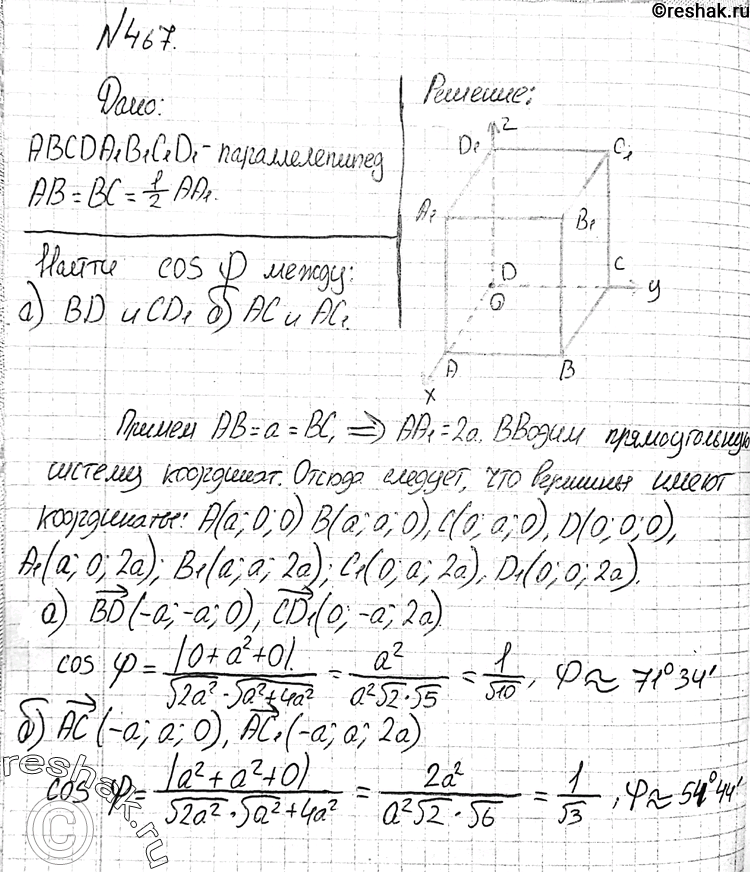 ©reshak.ru
№467.
Дано:
ABCDA₁B₁C₁D₁ - параллелепипед
AB = BC = 1/2 AA₁.
Найти cos φ между:
а) BD и CD₁ б) AC и AC₁.
Решение:
z
D₁ C₁
A₁ B₁
D C y
O
A B
x
Примем AB = a = BC, ⇒ AA₁ = 2a. ВВодим прямоугольную
систему координат. Отсюда следует, что вершины имеют
координаты: A(a; 0; 0) B(a; a; 0), C(0; a; 0), D(0; 0; 0),
A₁(a; 0; 2a); B₁(a; a; 2a); C₁(0; a; 2a), D₁(0; 0; 2a).
а) BD→(-a; -a; 0), CD₁→(0; -a; 2a)
cos φ = |0 + a² + 0|/(√2a² · √a² + 4a²) = a²/(a²√2 · √5) = 1/√10, φ ≈ 71°34'
б) AC→(-a; a; 0), AC₁→(-a; a; 2a)
cos φ = |a² + a² + 0|/(√2a² · √a² + 4a²) = 2a²/(a²√2 · √6) = 1/√3, φ ≈ 54°44'
reshak.ru
©